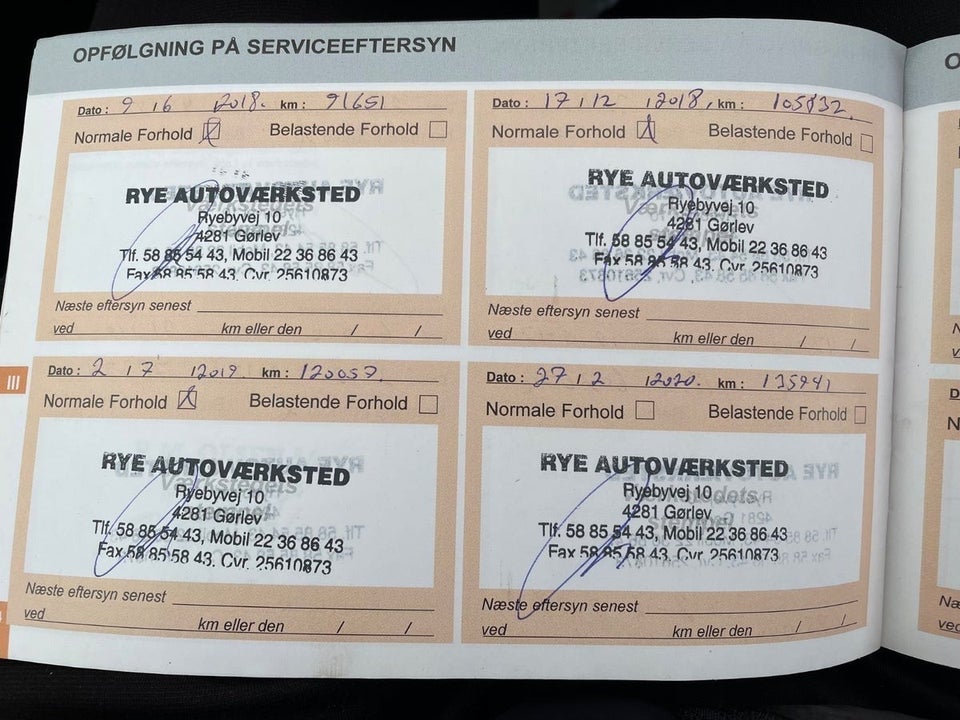 OPFØLGNING PÅ SERVICEEFTERSYN
Dato : 9 / 6 2018. km : 91651
Normale Forhold Belastende Forhold
RYE AUTOVÆRKSTED
Ryebyvej 10
4281 Gørlev
Tlf. 58 85 54 43, Mobil 22 36 86 43
Fax 58 85 58 43. Cvr. 25610873
Næste eftersyn senest
ved km eller den / /
Dato : 17 / 12 2018, km : 105832
Normale Forhold Belastende Forhold
RYE AUTOVÆRKSTED
Ryebyvej 10
4281 Gørlev
Tlf. 58 85 54 43, Mobil 22 36 86 43
Fax 58 85 58 43. Cvr. 25610873
Næste eftersyn senest
ved km eller den / /
III
Dato : 2 / 7 2019. km : 120057
Normale Forhold Belastende Forhold
RYE AUTOVÆRKSTED
Ryebyvej 10
4281 Gørlev
Tlf. 58 85 54 43, Mobil 22 36 86 43
Fax 58 85 58 43. Cvr. 25610873
Næste eftersyn senest
ved km eller den / /
Dato : 27 / 2 2020. km : 135941
Normale Forhold Belastende Forhold
RYE AUTOVÆRKSTED
Ryebyvej 10
4281 Gørlev
Tlf. 58 85 54 43, Mobil 22 36 86 43
Fax 58 85 58 43. Cvr. 25610873
Næste eftersyn senest
ved km eller den / /